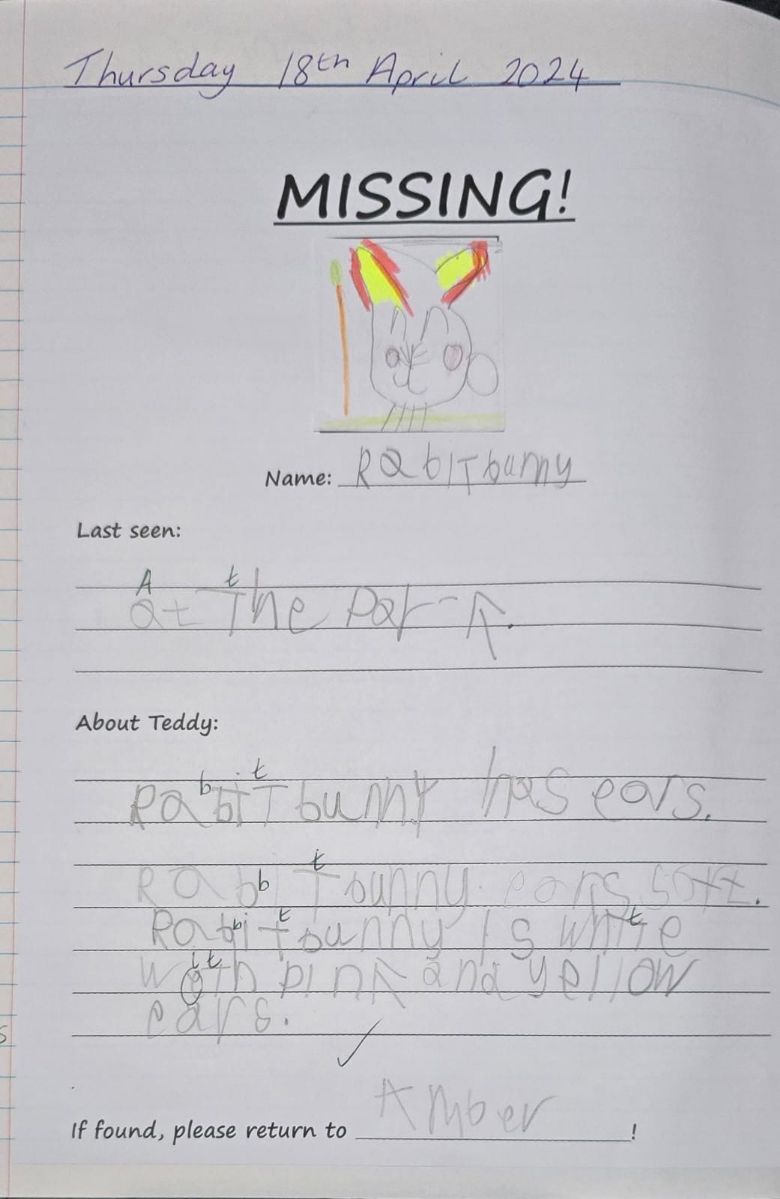 Thursday 18th April 2024
MISSING!
Name: RabiTbunny
Last seen:
A t
at The park.
About Teddy:
b t
RabiTbunny has ears.
b t
RabiTbunny ears soft.
bi t t
Rabitbunny is white
i t
with pink and yellow
ears.
If found, please return to Amber!